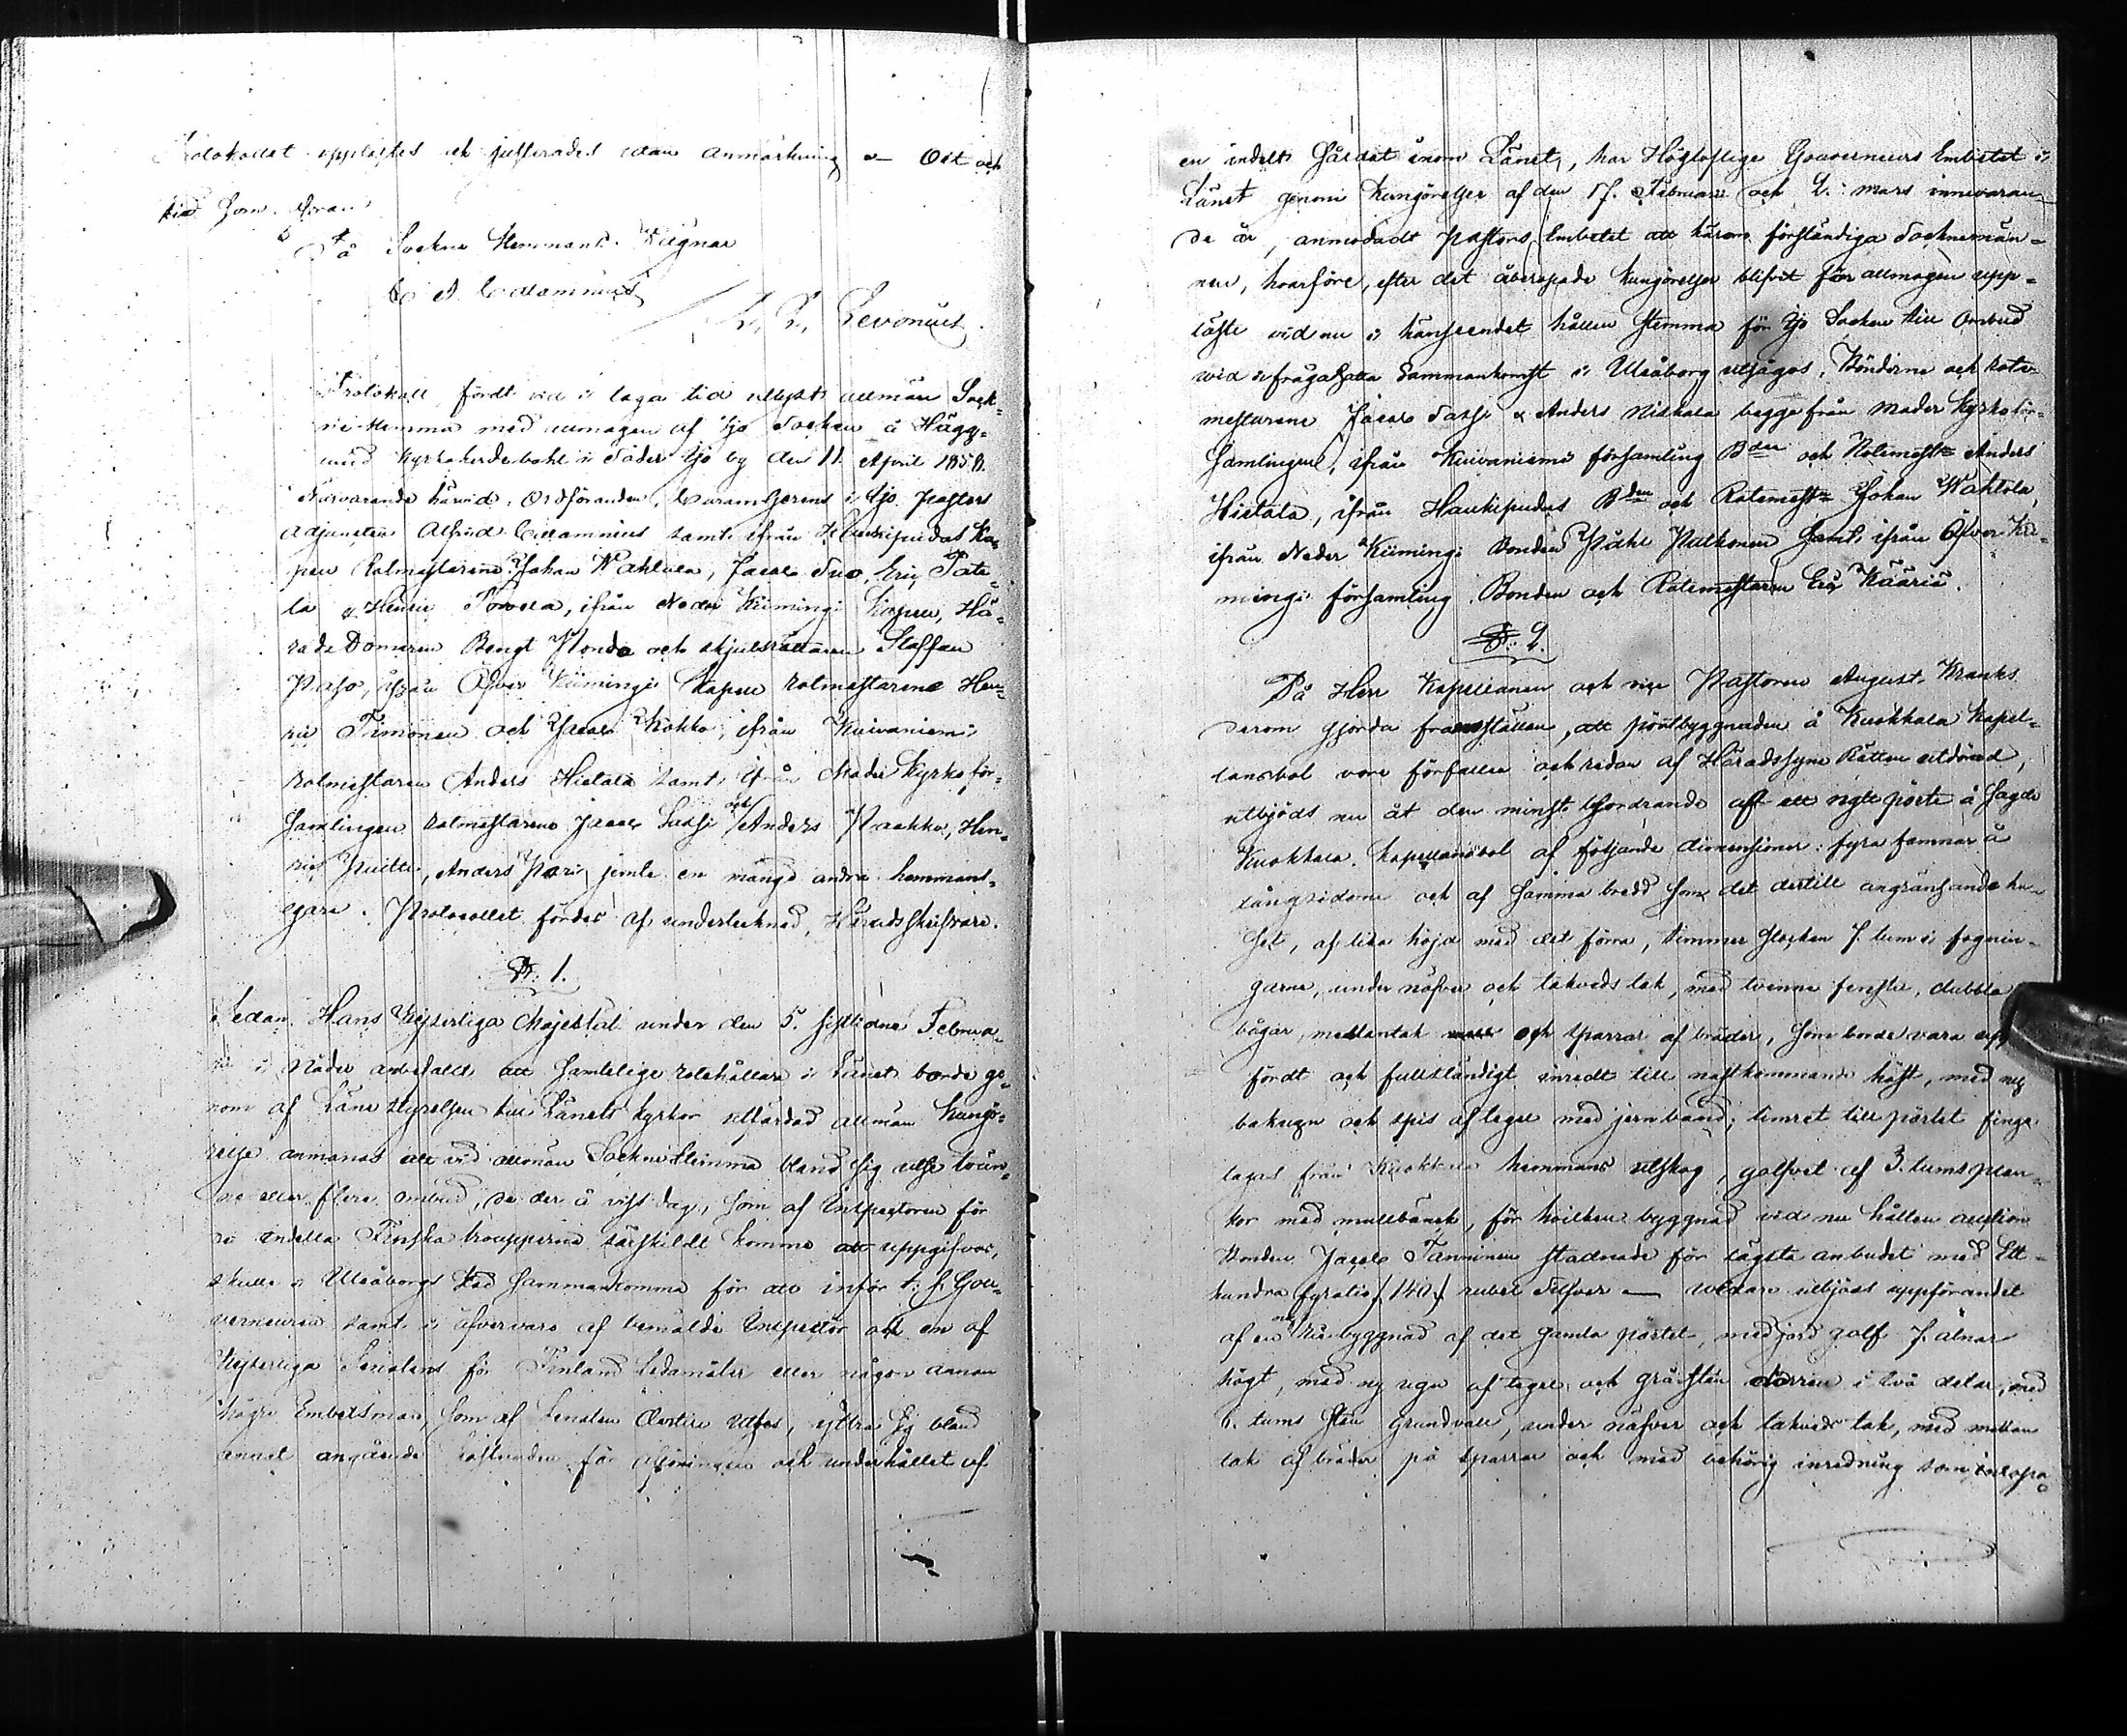 Protokollet upplästes och justerades utan anmärkning — Ort och
tid som ofvan
På Sockne Stemmans Vägnar
L. L. Levonius
Protokoll, fördt vid i laga tid utlyst allmän Sock-
nestemma med allmogen af Ijo Socken å Hägg-
mud Kyrkoherdebohl i Söder Ijo by den 11 April 1858.
Närvarande härvid, Ordföranden, Curam Gerens i Ijo, Pastors
adjuncten Alfred samt ifrån Haukipudas Ka-
pell Rotmästarene Johan Wahtola, Jacob Suo, Eric Pate-
la & Henric, ifrån Neder Kiimingi Kapell, Hä-
rads Domaren Bengt och skjutsrättaren Staffan
Paso, ifrån Öfver Kiimingi Kapell rotmästarene Hen-
ric Timonen och Jacob Kokko, ifrån Kuivaniemi
Rotmästaren Anders Hietala samt ifrån Moder Kyrkoför-
samlingen rotmästarene Jacob Sassi och Anders Paakko, Hen-
ric, Anders jemte en mängd andra hemmans-
egare. Protocollet fördes af undertecknad, Häradsskrifvare.
§. 1.
Sedan Hans Kejserliga Majestät under den 5. sistlidne Februa-
rii i Nåder anbefallt att samtelige rotehållare i Länet borde ge-
nom af Läne styrelsen till Länets kyrkor utfärdad allmän kungö-
relse anmanas att vid allmän Sockne Stemma bland sig utse tvän-
ne eller flere ombud, de der å viss dag, som af Inspectoren för
de indelta Finska troupperne särskildt komme att uppgifvas,
skulle i Uleåborgs stad sammankomma för att inför t. f. Gou-
verneuren samt i öfvervaro af bemälde Inspector och en af
Kejserliga Senatens för Finland Ledamöter eller någon annan
högre Embetsman, som af Senaten dertill utses, yttra sig bland
annat angående kostnaden för aflöningen och underhållet af
en indelt Gårdat inom Länet, har Högloflige Gouverneurs Embetet i
Länet genom Kungörelser af den 17. Februarii och 2. Mars innevaran-
de år, anmodadt Pastors Embetet att härom förständiga Socknemän-
nen, hvarföre, efter det åberopade kungörelser blifvit för allmogen upp-
läste vid nu i hänseendet hållen stemma för Ijo Socken till Ombud
vid ifrågasatta sammankomst i Uleåborg utsågos, Bönderne och rote-
mestarene Jacob Sassi & Anders Niskala begge från Moder Kyrkoför-
samlingen, ifrån Kuivaniemi församling Bden och Rotemestn Anders
Hietala, ifrån Haukipudas Bden och Rotemestn Johan Wahtola,
ifrån Neder Kiimingi Bonden Påhl Pulkonen samt ifrån Öfver Kii-
mingi församling Bonden och Rotemestaren Eric Kääriä.
§. 2.
På Herr Kapellanen och vice Pastoren August Kranks
derom gjorda framställan, att pörtbyggnaden å Kuokkala Kapel-
lansbol vore förfallen och redan af Häradssyne Rätten utdömd,
utbjöds nu åt den minst fordrande att ett nytt pörte å sagde
Kuokkala Kapellansbol af följande dimensioner: fyra famnar å
långsidorne och af samma bredd som det dertill angränsande hu-
set, af lika höjd med det förra, timmer stocken 7. tum i fognin-
garne, under näfver och takveds tak, med tvenne fenster, dubbla
bågar, mellantak och sparrar af bräder, som borde vara upp
fördt och fullständigt inredt till nästkommande höst, med ny
bakugn och spis af tegel med jernband; timret till pörtet finge
tagas från Kuokkala hemmans utskog, golfvet af 3. tums plan-
kor med mullbänk, för hvilken byggnad vid nu hållen auction
Bonden Jacob Tanninen stadnade för lägsta anbudet med Ett-
hundra fyratio /:140:/ rubel Silfver — vidare utbjöds uppförandet
af en ny ria byggnad af det gamla pörtet, med jord golf 7. alnar
högt, med ny ugn af tegel och gråsten dörren i två delar, med
6. tums sten grundvall, under näfver och takveds tak, med mellan
tak af bräder på sparrar och med behörig inredning